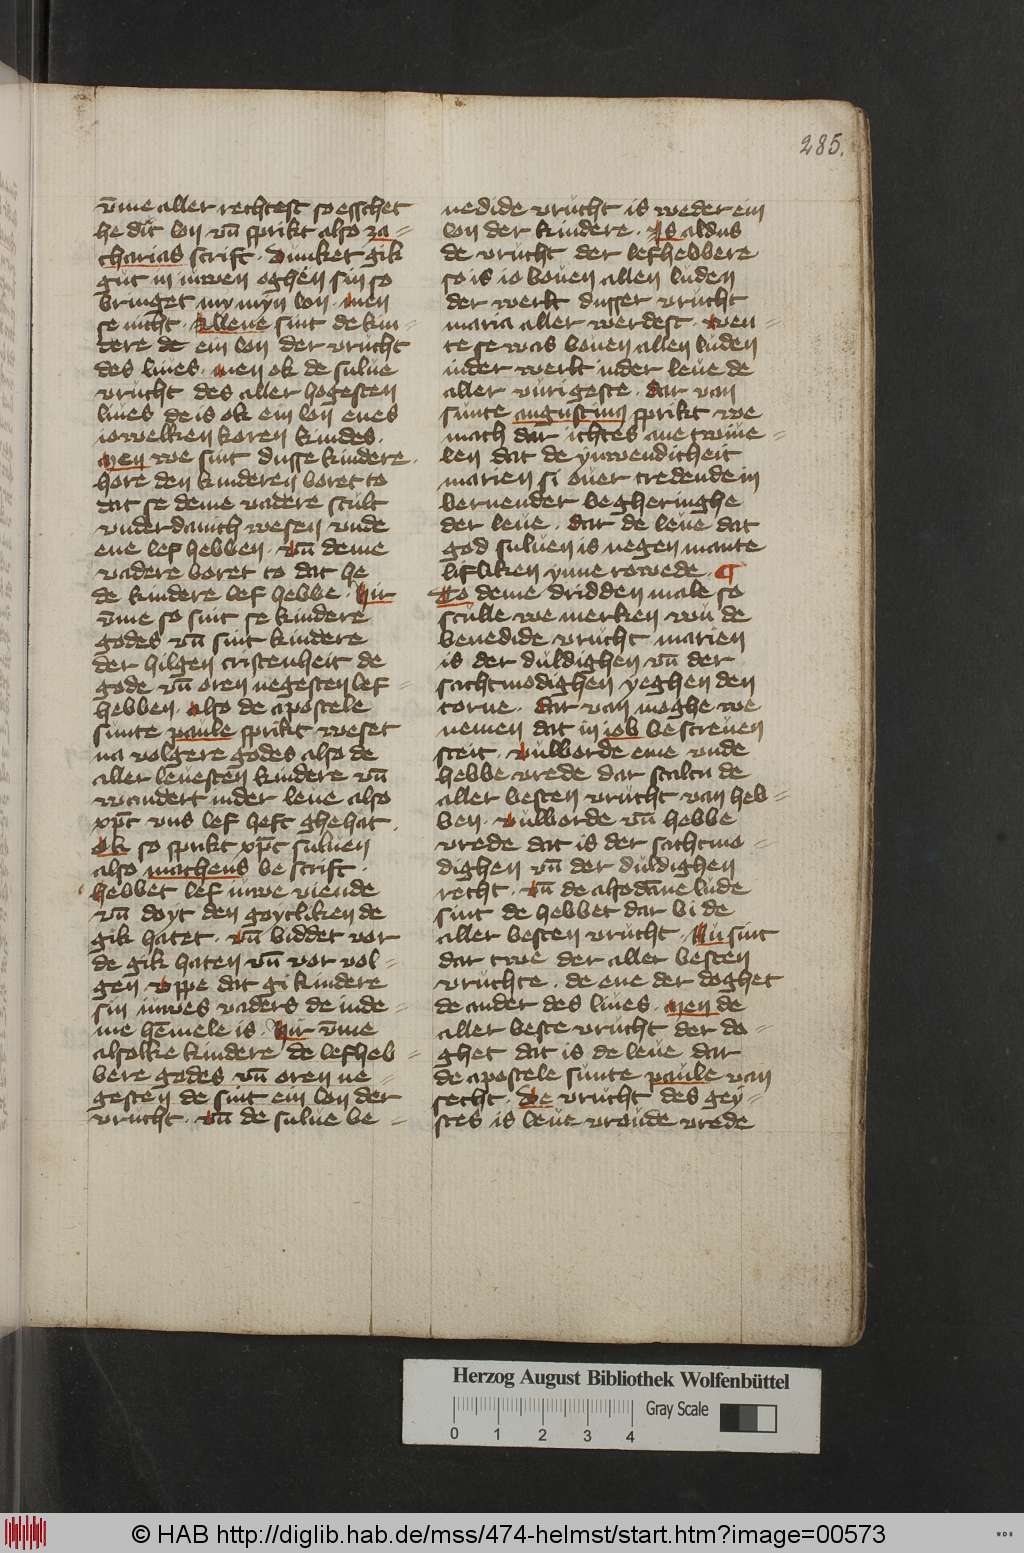 285.
v̄me aller rechtest so esschet
he dit lon vn̄ sprikt also za=
charias scrift. Dunket gik
gut in iuwen oghen sin so
bringet my myn lon. men
se nicht. Alleue sint de kin-
dere de ein lon der vrucht
des liues. men ok de sulue
vrucht des aller hogesten
liues de is ok ein lon enes
iowelken koren kindes.
Men we sint dusse kindere.
hore den kinderen boret to
dat se deme vadere scult
vnderdanich wesen vnde
ene lef hebben. vn̄ deme
vadere boret to dat he
de kindere lef hebbe. Hir
v̄me so sint se kindere
godes vn̄ sint kindere
der hilgen cristenheit de
gode vn̄ oren negesten lef=
hebben. also de apostele
sunte paule sprikt weset
na volgere godes also de
aller leuesten kindere vn̄
wandert inder leue also
xp̄c vns lef heft ghehat.
Ok so sprikt xp̄c suluen
also matheus be scrift.
hebbet lef iuwe viende
vn̄ doyt den goytliken de
gik hatet. vn̄ biddet vor
de gik haten vn̄ vor vol=
gen vppe dat gi kindere
sin iuwes vaders de inde=
me hēmele is. Hir v̄me
alsolke kindere de lefheb=
bere godes vn̄ oren ne=
gesten de sint ein lon der
vrucht. vn̄ de sulue be=
nedide vrucht is weder ein
lon der kindere. Is aldus
de vrucht der lefhebbere
so is io bouen allen luden
der werlt dusser vrucht
maria aller werdest. wen=
te se was bouen allen luden
inder werlt inder leue de
aller vurigeste. dar van
sunte augustinus sprikt we
mach dar ichtes ane twiue=
len dat de ynwendicheit
marien si ouer tredende in
bernender begheringhe
der leue. dar de leue dat
god suluen is negen mante
lifliken ynne rowede. ¶
To deme dridden male so
sculle we merken wu de
benedide vrucht marien
is der duldighen vn̄ der
sachtmodighen yeghen den
torne. dar van moghe we
nemen dat in iob bescreuen
steit. vulborde eme vnde
hebbe vrede dar scaltu de
aller besten vrucht van heb=
ben. vulborde vn̄ hebbe
vrede dat is der sachtmo=
dighen vn̄ der duldighen
recht. vn̄ de alsodāne lude
sint de hebbet dar bi de
aller besten vrucht. Nu sint
dar twe der aller besten
vruchte. de ene der doghet
de ander des liues. Men de
aller beste vrucht der do=
ghet dat is de leue dar
de apostele sunte paule van
secht. De vrucht des gey=
stes is leue vroude vrede
Herzog August Bibliothek Wolfenbüttel
Gray Scale
0 1 2 3 4
© HAB http://diglib.hab.de/mss/474-helmst/start.htm?image=00573